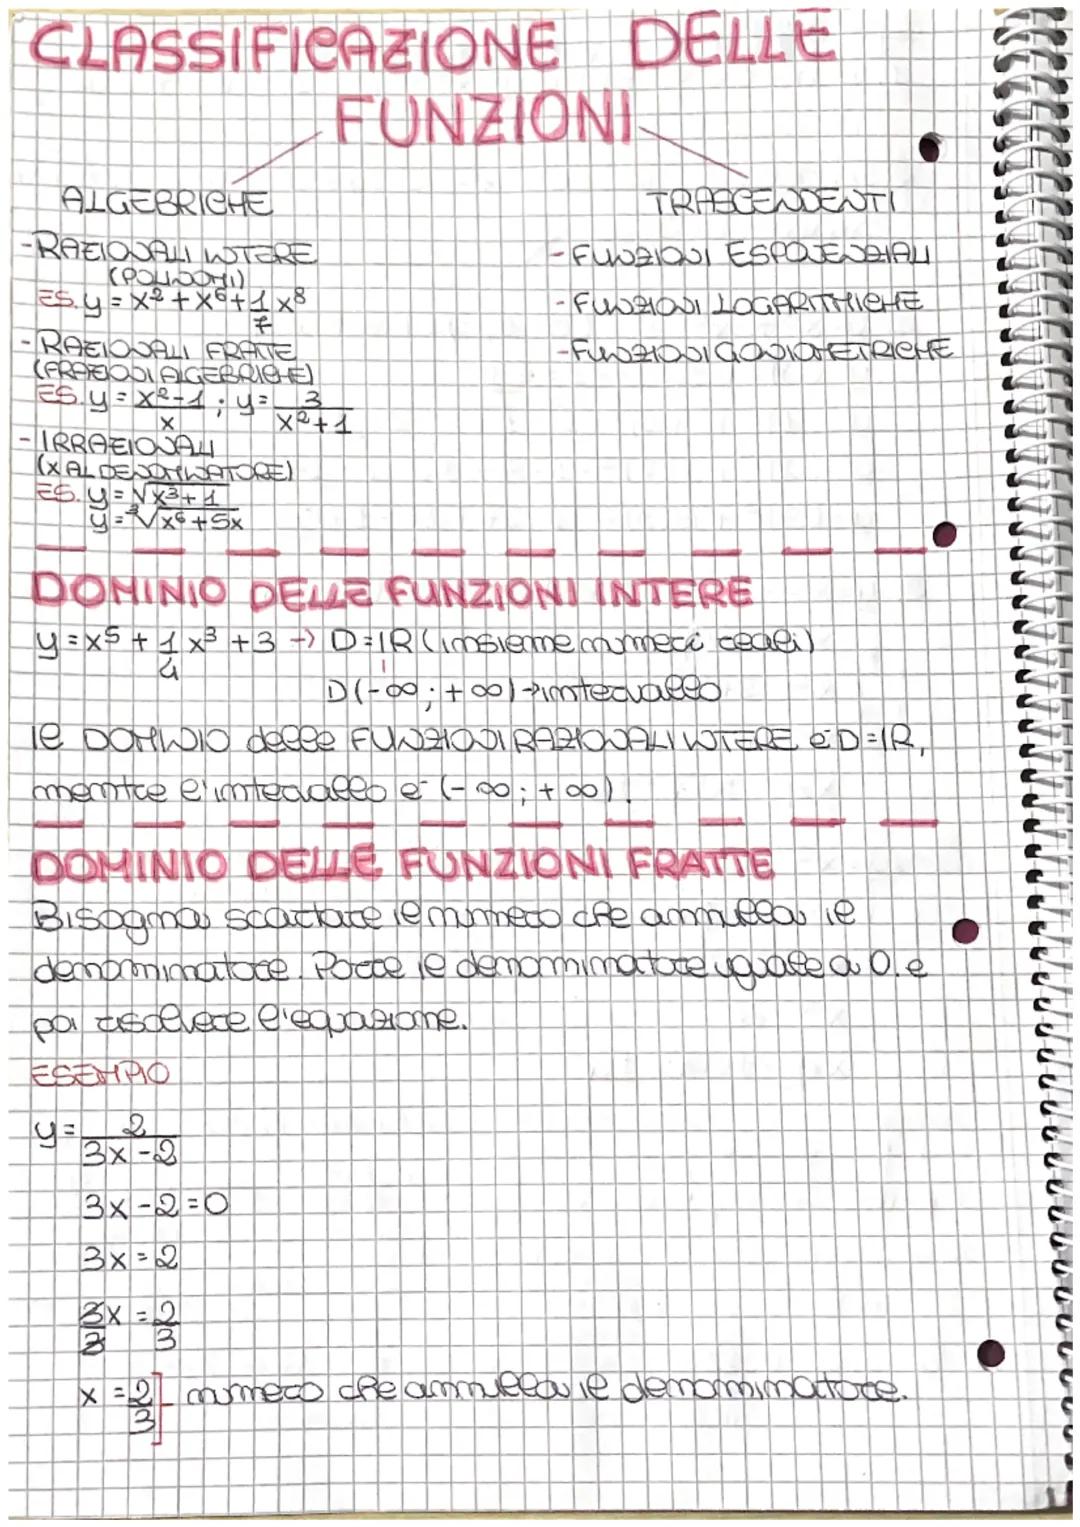 CLASSIFICAZIONE DELLE
FUNZIONI
ALGEBRICHE
TRASCENDENTI
-RAZIONALI INTERE
(POLINOMI)
ES. y = x² + x⁶ + 1/7 x⁸
-RAZIONALI FRATTE
(FRAZIONI ALGEBRICHE)
ES. y = x²-1/x ; y = 3/x²+1
-IRRAZIONALI
(X AL DENOMINATORE)
ES. y = √x³+1
y = ³√x⁶+5x
-FUNZIONI ESPONENZIALI
-FUNZIONI LOGARITMICHE
-FUNZIONI GONIOMETRICHE
DOMINIO DELLE FUNZIONI INTERE
y = x⁵ + 1/4 x³ + 3 → D=IR (insieme numeri reali)
D(-∞; +∞) → intervallo
il DOMINIO delle FUNZIONI RAZIONALI INTERE è D=IR,
mentre l'intervallo è (-∞; +∞).
DOMINIO DELLE FUNZIONI FRATTE
Bisogna scartare il numero che annulla il
denominatore. Porre il denominatore uguale a 0. e
poi risolvere l'equazione.
ESEMPIO
y = 2/3x-2
3x-2=0
3x=2
3x/3 = 2/3
x = 2/3] numero che annulla il denominatore.